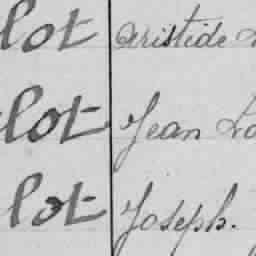 lot Aristide
lot Jean Lo
lot Joseph.